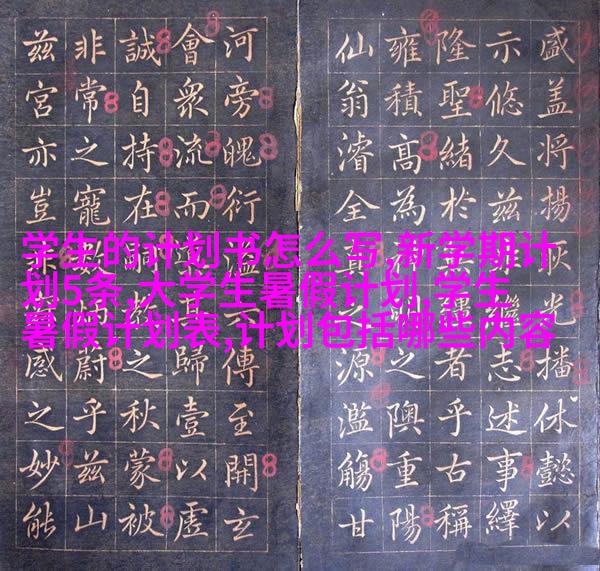 学生的计划书怎么写,新学期计
划5条,大学生暑假计划,学生
暑假计划表,计划包括哪些内容
盛盖将揚光播休懿以
示悠久兹繼志述事繹
隆聖緒於者乎古稱
雍積高為之隩重陽
仙翁濬全真源濫觴甘
河旁魄衍溢傳至開玄
會衆流而歸壹以虛
誠自持在之秋蒙被
非常之寵蔚乎兹山
兹宮亦豈感之妙能